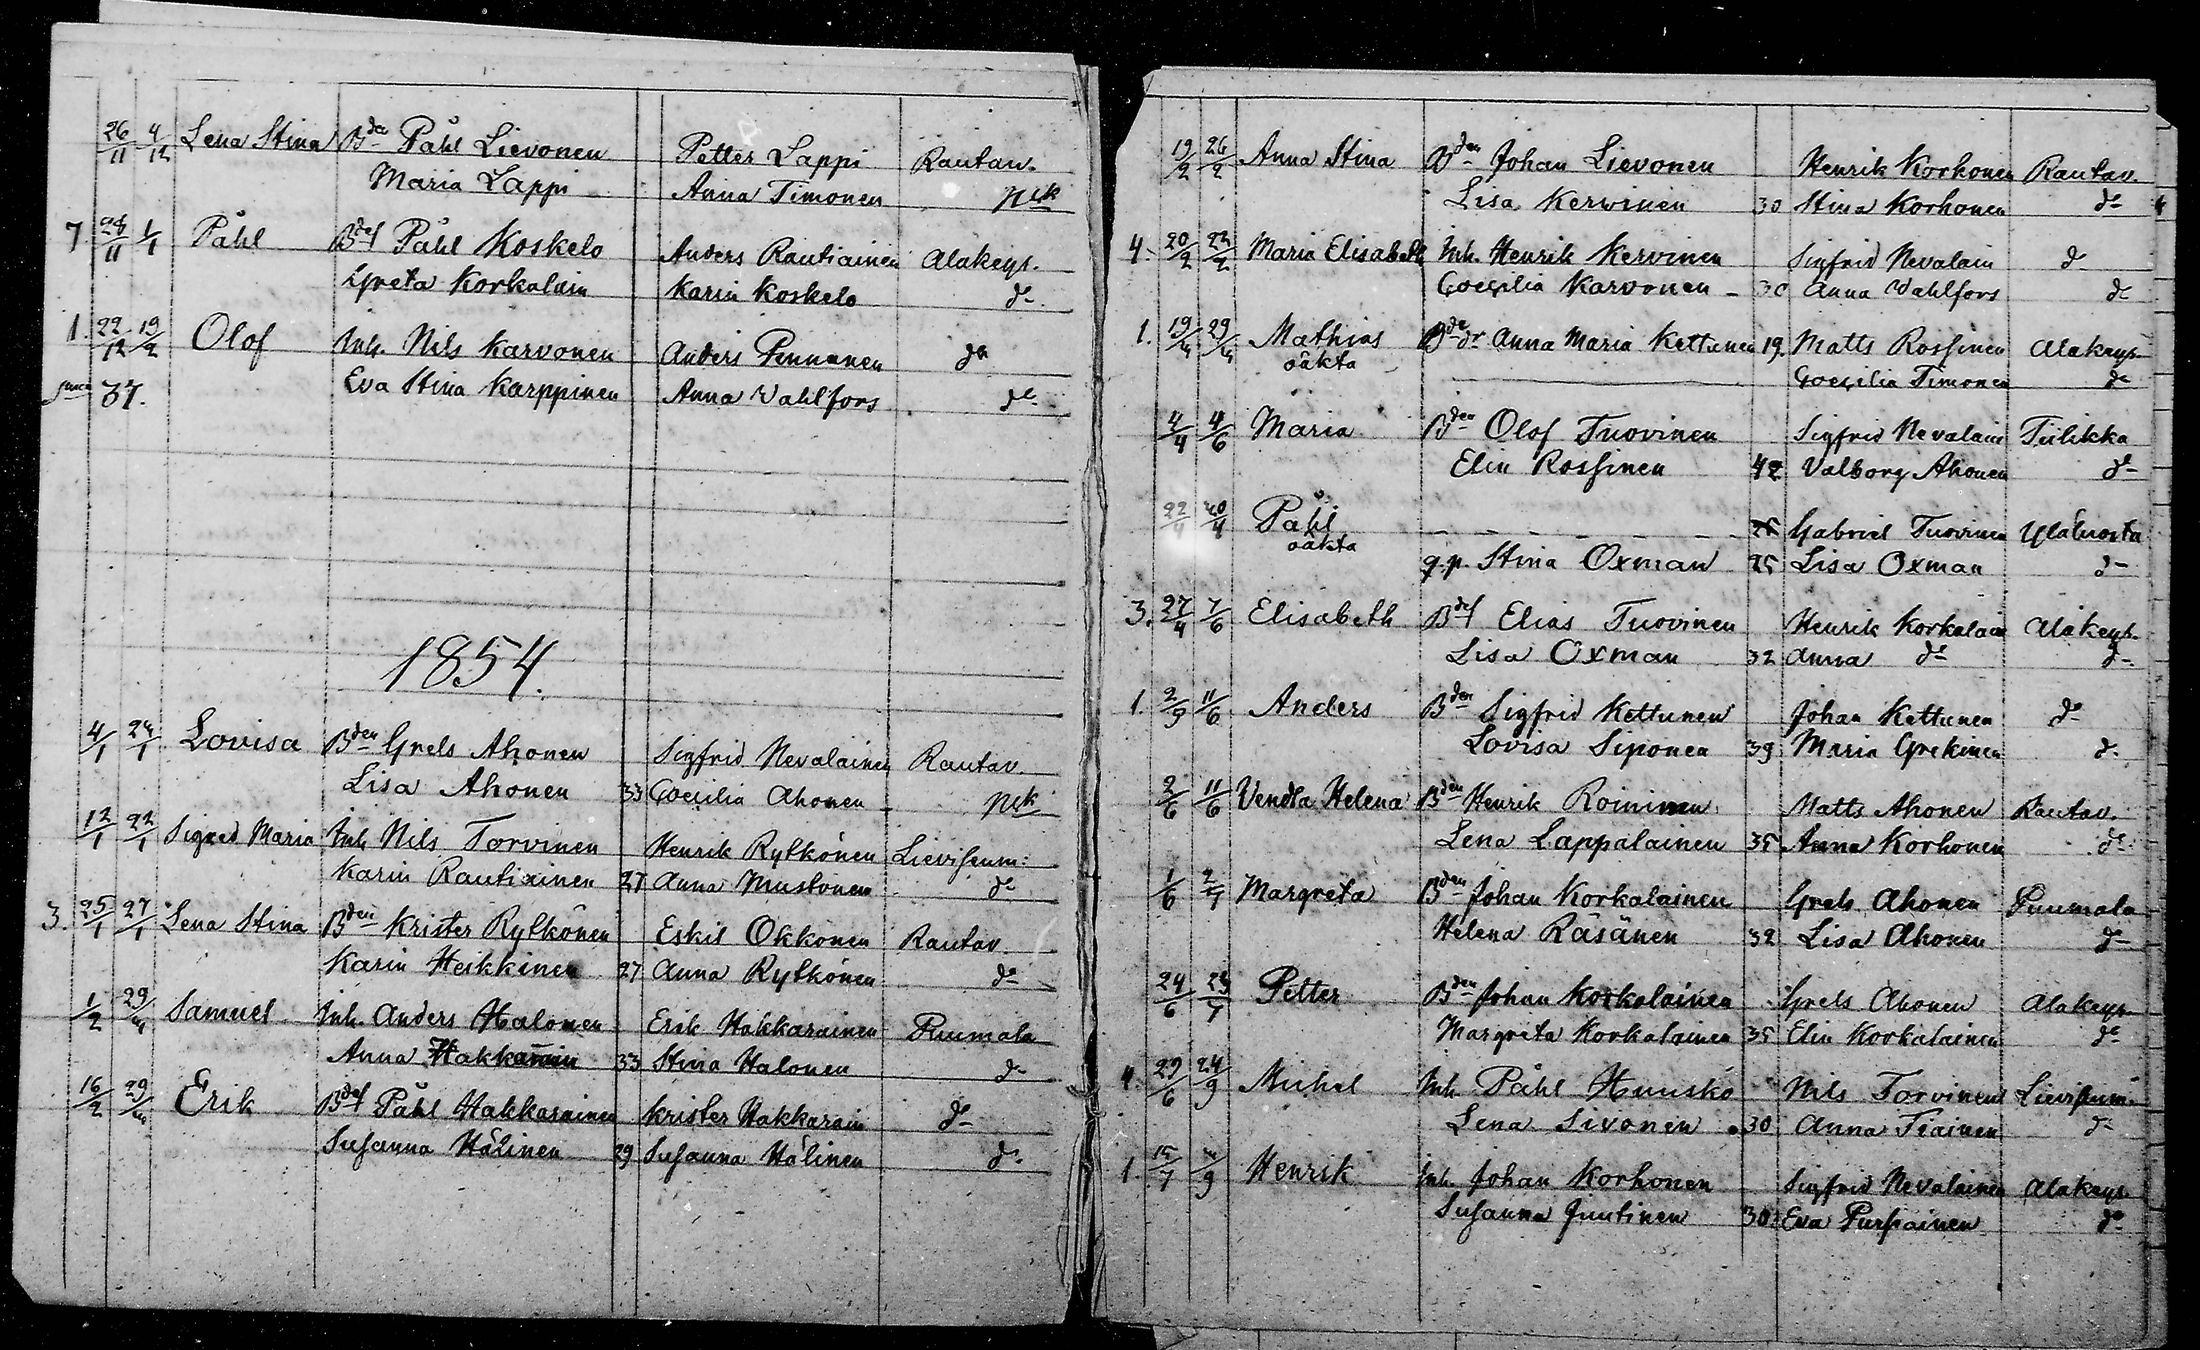 26/11 4/12 Lena Stina Bde Påhl Lievonen Petter Lappi Rautav.
Maria Lappi Anna Timonen Nsk
7 28/11 1/1 Påhl Bdef Påhl Koskelo Anders Rautiainen Alakeys.
Greta Korkalain Karin Koskelo do
1. 22/12 19/2 Olof Inh. Nils Karvonen Anders Pennanen do
37. Eva Stina Karppinen Anna Vahlfors do
1854.
4/1 24/1 Lovisa Bden Grels Ahonen Sigfrid Nevalainen Rautav.
Lisa Ahonen 33 Coecilia Ahonen Nsk
12/1 22/1 Sigred Maria Inh Nils Torvinen Henrik Rytkönen Lievisenm:
Karin Rautiainen 27 Anna Mustonen do
3. 25/1 27/1 Lena Stina Bden Krister Rytkönen Eskil Okkonen Rautav.
Karin Heikkinen 27 Anna Rytkönen do
1/2 29/4 Samuel Inh. Anders Halonen Erik Hakkarainen Puumala
Anna Hakkarain 33 Stina Halonen do
16/2 29/4 Erik Bdef Påhl Hakkarainen Krister Hakkarain do
Susanna Hälinen 29 Susanna Hälinen do
19/2 26/2 Anna Stina Bden Johan Lievonen Henrik Korhonen Rautav.
Lisa Kervinen 30 Stina Korhonen do
4. 20/2 22/2 Maria Elisabeth Inh. Henrik Kervinen Sigfrid Nevalain do
Coecilia Karvonen 30 Anna Vahlfors do
1. 19/4 29/4 Mathias Bdedr Anna Maria Kettunen 19 Matts Rossinen Alakeys.
oäkta Coecilia Timonen do
4/4 4/6 Maria Bden Olof Tuovinen Sigfrid Nevalain Tiilikka
Elin Rossinen 42 Valborg Ahonen do
22/4 30/4 Påhl Gabriel Tuovinen Yläluosta
oäkta
q.p. Stina Oxman 25 Lisa Oxman do
3. 27/4 7/6 Elisabeth Bdef Elias Tuovinen Henrik Korkalain Alakeys.
Lisa Oxman 32 Anna do do
1. 2/5 11/6 Anders Bden Sigfrid Kettunen Johan Kettunen do
Lovisa Siponen 39 Maria Grekinen do
2/6 11/6 Vendla Helena Bden Henrik Roininen Matts Ahonen Rautav.
Lena Lappalainen 35 Anna Korhonen do
1/6 2/7 Margreta Bden Johan Korkalainen Grels Ahonen Puumala
Helena Räsänen 32 Lisa Ahonen do
24/6 23/7 Petter Bden Johan Korkalainen Grels Ahonen Alakeys.
Margreta Korkalainen 35 Elin Korkalainen do
4. 29/6 24/9 Michel Inh. Påhl Huusko Nils Torvinen Lievisenm.
Lena Sivonen 30 Anna Tiainen do
1. 15/7 Henrik Inh. Johan Korhonen Sigfrid Nevalainen Alakeys.
Susanna Juutinen 30 Eva Pursiainen do